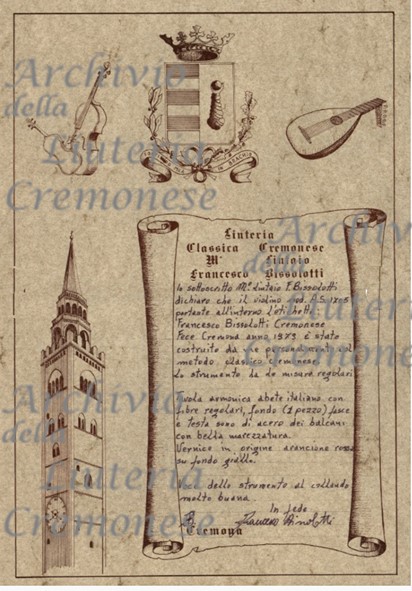 Archivio
della
Liuteria
Cremonese
Liuteria
Classica Cremonese
M° Liutaio
Francesco Bissolotti
Io sottoscritto M° Liutaio F. Bissolotti
dichiaro che il violino mod. A.S. 1705
portante all'interno l'etichetta
Francesco Bissolotti Cremonese
Fece Cremona anno 1973 è stato
costruito da me personalmente col
metodo classico cremonese.
Lo strumento da me misure regolari
Tavola armonica abete italiano con
fibre regolari, fondo (1 pezzo) fasce
e testa sono di acero dei balcani
con bella marezzatura.
Vernice in origine arancione rosso
su fondo giallo.
dello strumento al collaudo
molto buona.
In fede
Francesco Bissolotti
Cremona
Archivio
della
Liuteria
Cremonese
Archivio
della
Liuteria
Cremonese